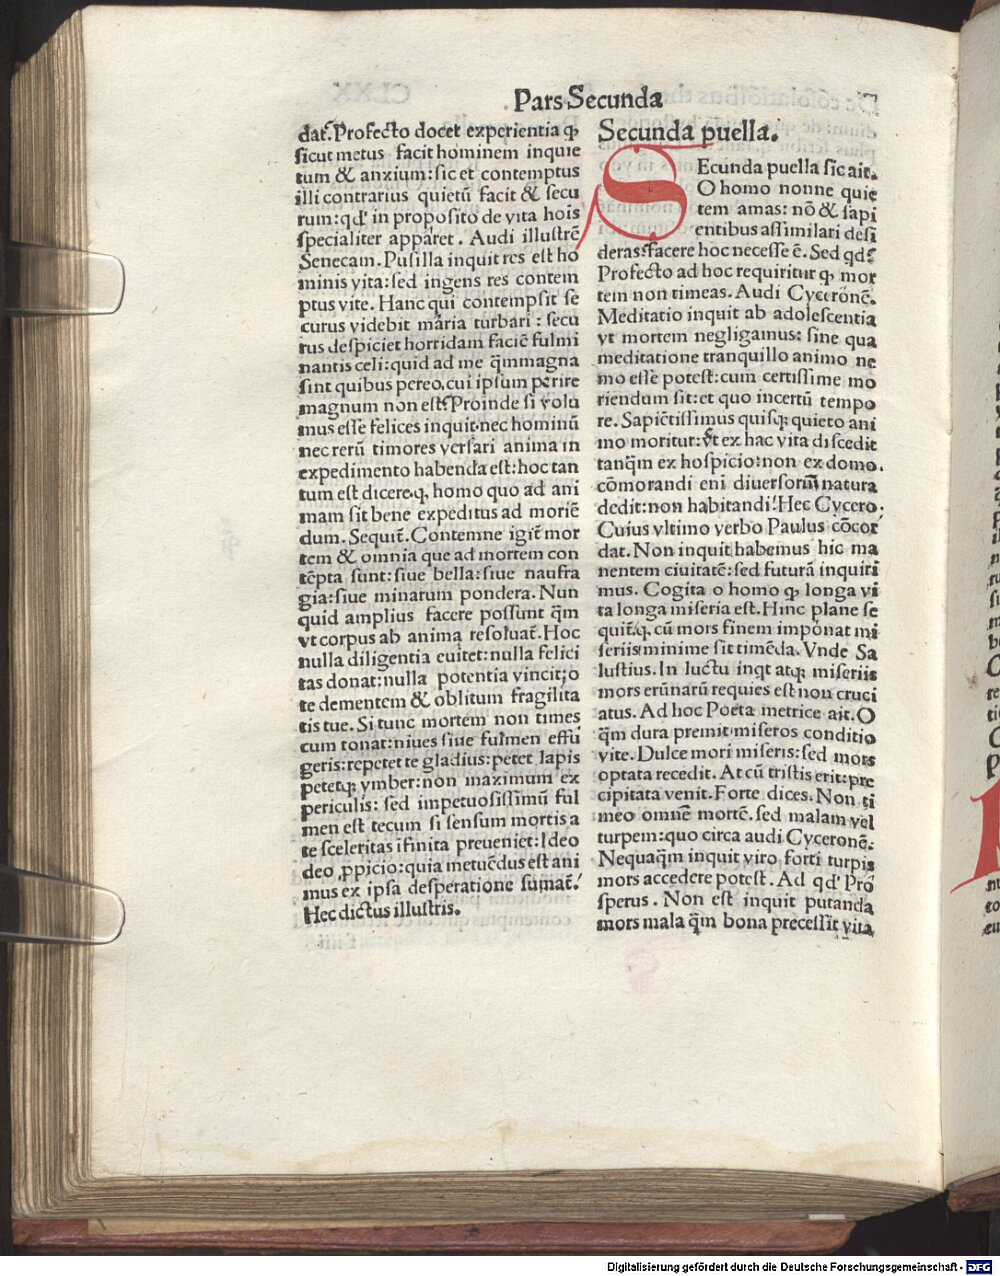 Pars Secunda
dat᷑. Profecto docet experientia ꝙ
sicut metus facit hominem inquie
tum & anxium: sic et contemptus
illi contrarius quietū facit & secu
rum: qd' in proposito de vita hois
specialiter apparet. Audi illustrē
Senecam. Pusilla inquit res est ho
minis vita: sed ingens res contem
ptus vite. Hanc qui contempsit se
curus videbit maria turbari: secu
rus despiciet horridam faciē fulmi
nantis celi: quid ad me q̄m magna
sint quibus pereo, cui ipsum perire
magnum non est. Proinde si volu
mus esse felices inquit. nec hominū
nec rerū timores versari anima in
expedimento habenda est: hoc tan
tum est dicere. ꝙ homo quo ad ani
mam sit bene expeditus ad moriē
dum. Sequit᷑. Contemne igit᷑ mor
tem & omnia que ad mortem con
tēpta sunt: siue bella: siue naufra
gia: siue minarum pondera. Nun
quid amplius facere possunt q̄m
vt corpus ab anima resoluāt. Hoc
nulla diligentia euitet: nulla felici
tas donat: nulla potentia vincit; o
te dementem & oblitum fragilita
tis tue. Si tunc mortem non times
cum tonat: niues siue fulmen effu
geris: repetet te gladius: petet lapis
petetqȝ ymber: non maximum ex
periculis: sed impetuosissimū ful
men est tecum si sensum mortis a
te sceleritas ifinita preueniet: Ideo
deo ꝓpicio: quia metuēdus est ani
mus ex ipsa desperatione sumat᷑.
Hec dictus illustris.
Secunda puella.
SEcunda puella sic ait.
O homo nonne quie
tem amas: nō & sapi
entibus assimilari desi
deras: facere hoc necesse ē. Sed qd?
Profecto ad hoc requiritur ꝙ mor
tem non timeas. Audi Cyceronē.
Meditatio inquit ab adolescentia
vt mortem negligamus: sine qua
meditatione tranquillo animo ne
mo esse potest: cum certissime mo
riendum sit: et quo incertū tempo
re. Sapiētissimus quisqȝ quieto ani
mo moritur: vt ex hac vita discedit
tanq̄m ex hospicio: non ex domo.
cōmorandi eni diuersoriū natura
dedit: non habitandi. Hec Cycero.
Cuius vltimo verbo Paulus cōcor
dat. Non inquit habemus hic ma
nentem ciuitatē: sed futurā inquiri
mus. Cogita o homo ꝙ longa vi
ta longa miseria est. Hinc plane se
quit᷑ ꝙ cū mors finem imponat mi
seriis minime sit timēda. Vnde Sa
lustius. In luctu inqt atqȝ miseriis
mors erūnarū requies est non cruci
atus. Ad hoc Poeta metrice ait. O
q̄m dura premit miseros conditio
vite. Dulce mori miseris: sed mors
optata recedit. At cū tristis erit: pre
cipitata venit. Forte dices. Non ti
meo omnē mortē. sed malam vel
turpem: quo circa audi Cyceronē.
Nequaq̄m inquit viro forti turpis
mors accedere potest. Ad qd' Pro
sperus. Non est inquit putanda
mors mala q̄m bona precessit vita
Digitalisierung gefördert durch die Deutsche Forschungsgemeinschaft - DFG